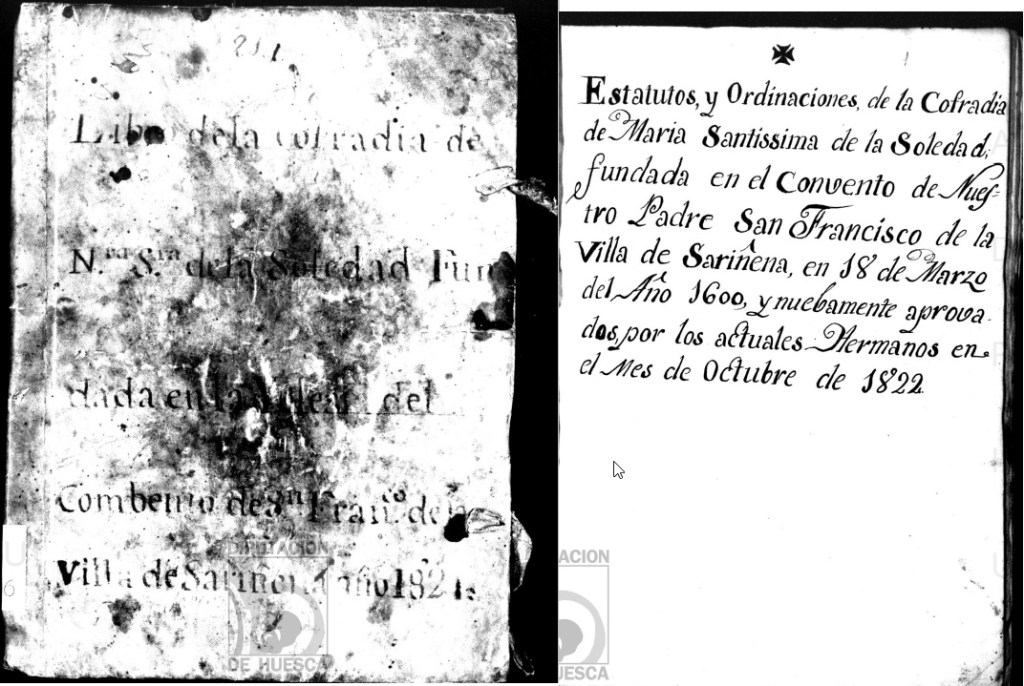 211
Libro dela cofradia de
N.ra S.ra dela Soledad Fun
dada en la Iglesia del
Combento de S.n Fran.co dela
Villa de Sariñena año 182
DIPUTACIÓN
DE HUESCA
U
6
1
Estatutos, y Ordinaciones, de la Cofradia
de Maria Santissima de la Soledad,
fundada en el Convento de Nues-
tro Padre San Francisco de la
Villa de Sariñena, en 18 de Marzo
del Año 1600, y nuebamente aprova-
dos, por los actuales Hermanos en
el Mes de Octubre de 1822
ACION
UESCA